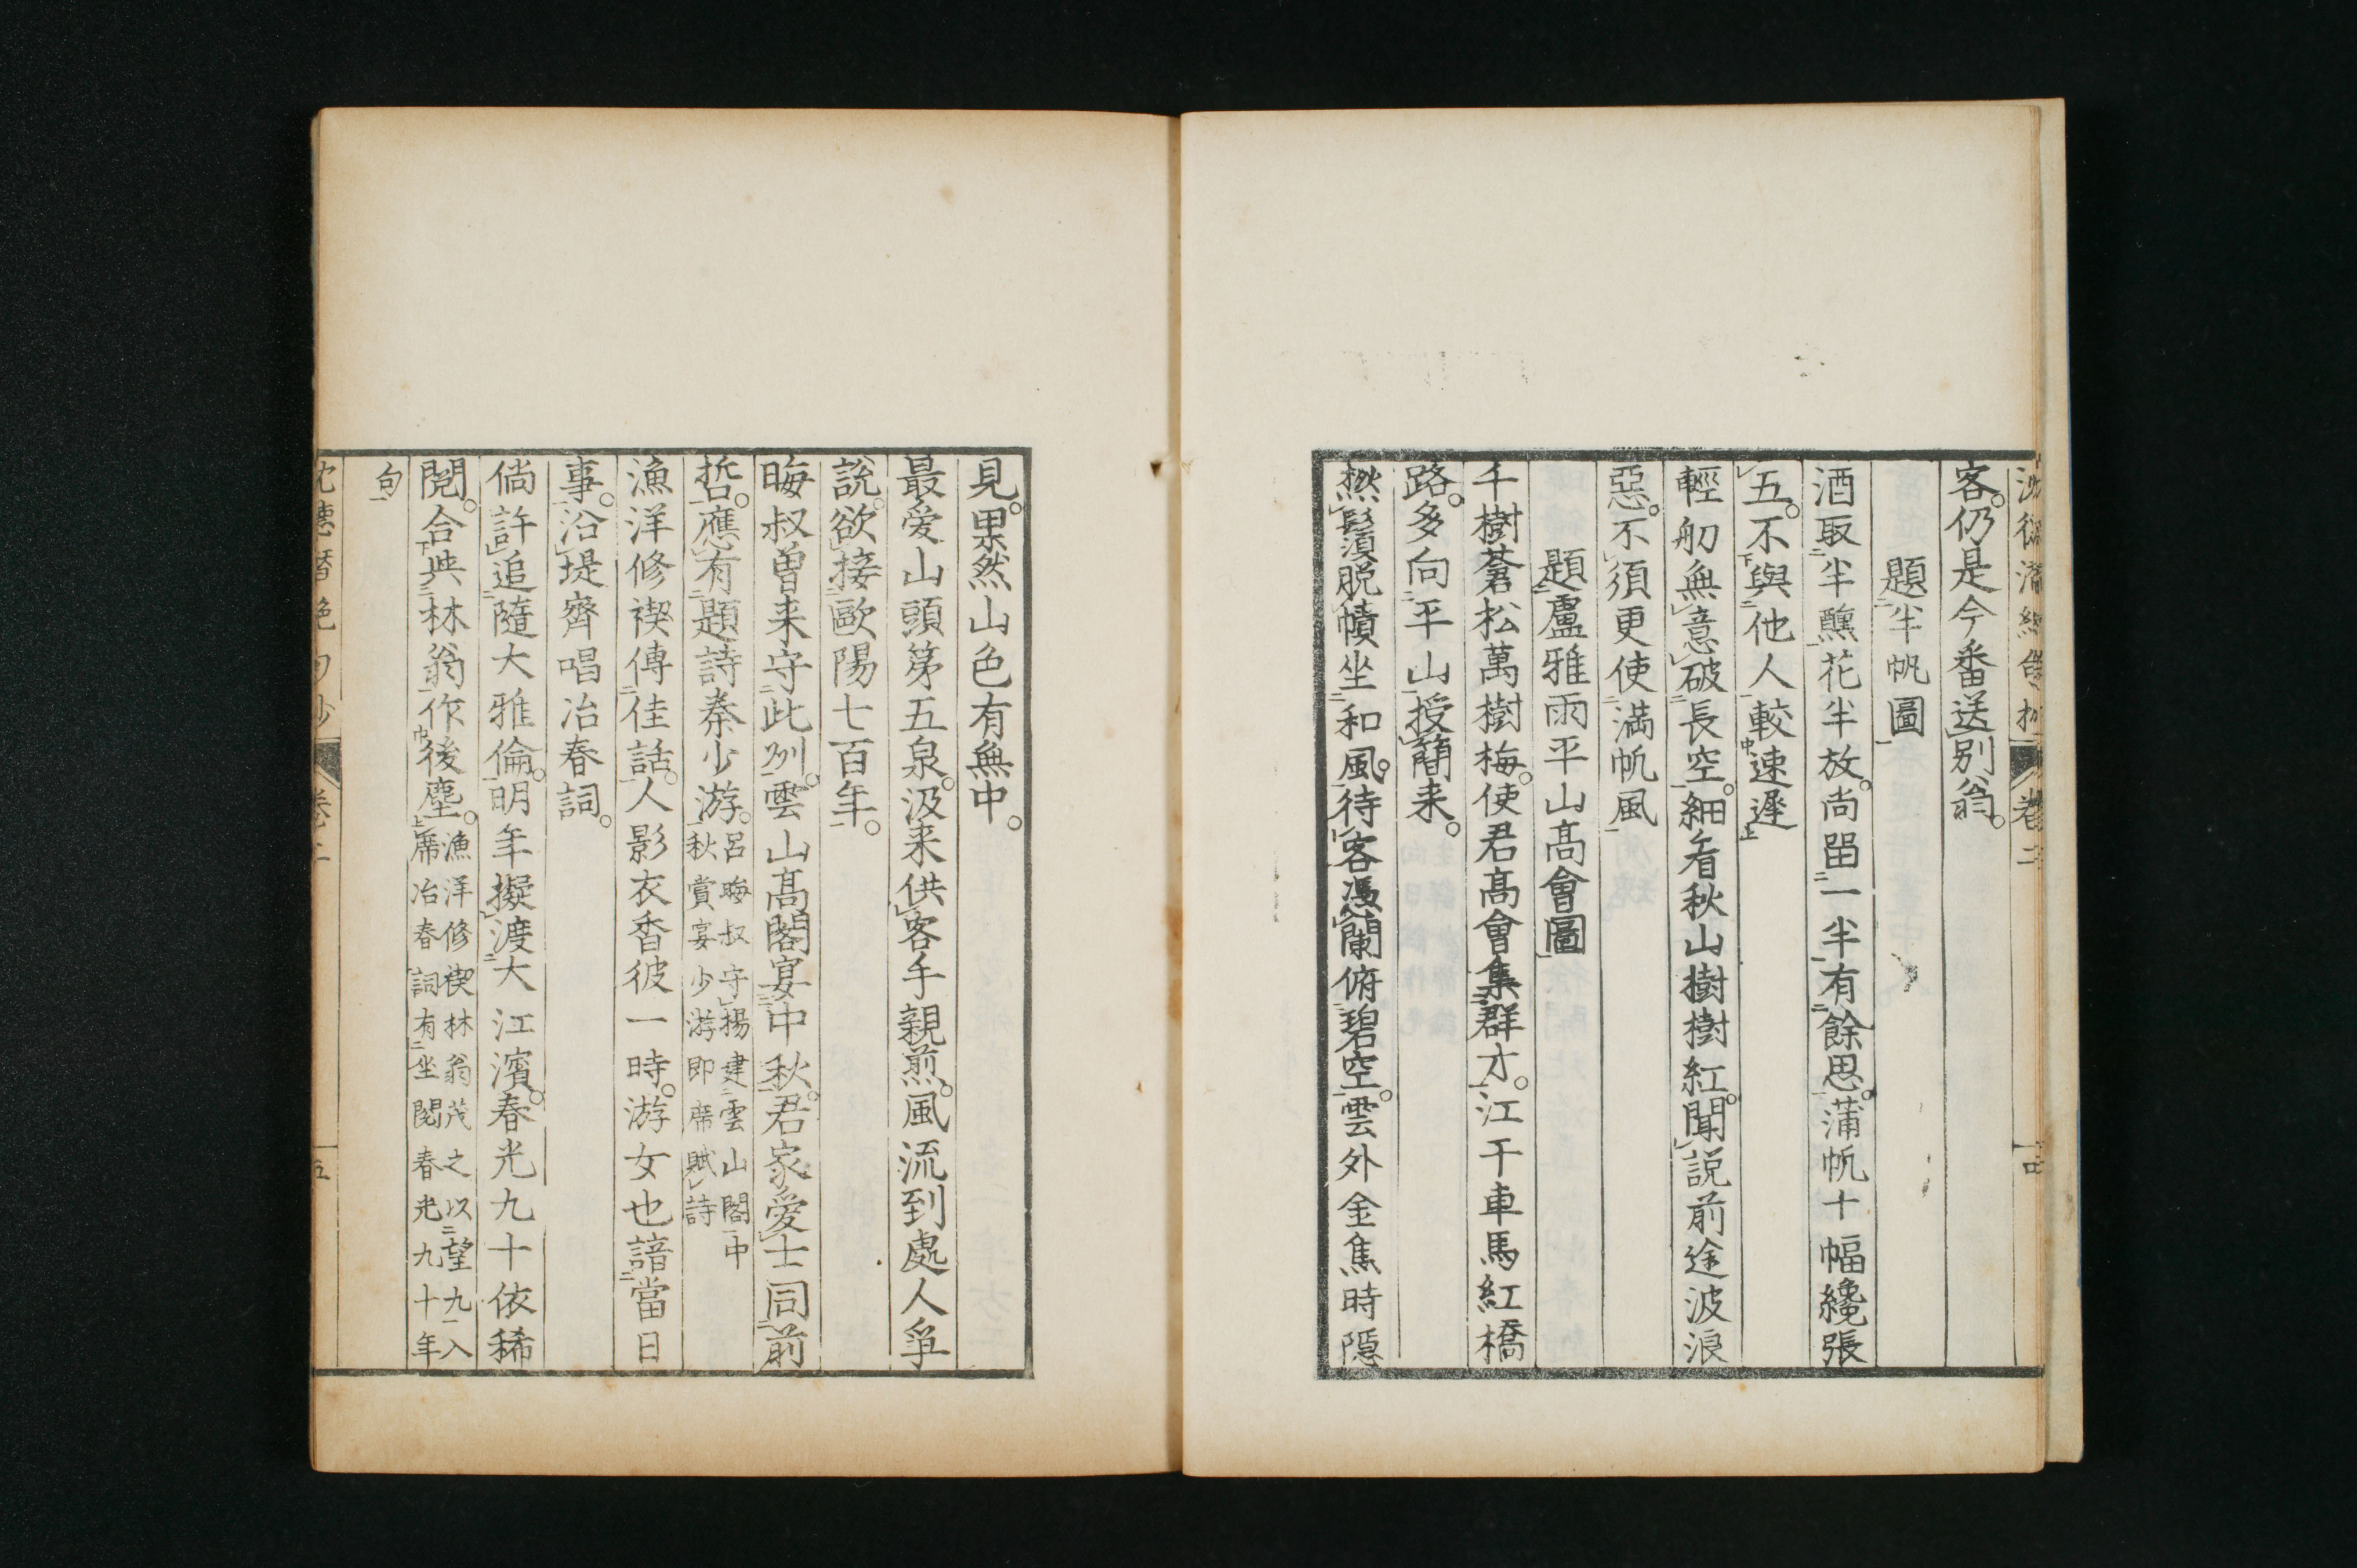 客。仍是今番送別翁。
題半帆圖
酒取半醺花半放。尚畱一半有餘思。蒲帆十幅纔張
五。不與他人較速遲
輕舠無意破長空。細看秋山樹樹紅。聞説前途波浪
惡。不須更使滿帆風
題盧雅雨平山高會圖
千樹蒼松萬樹梅。使君高會集群才。江干車馬紅橋
路。多向平山授簡来。
撚鬚脱幘坐和風。待客憑闌俯碧空。雲外金焦時隱
見。果然山色有無中。
最愛山頭第五泉。汲来供客手親煎。風流到處人爭
說。欲接歐陽七百年。
晦叔曽来守此州。雲山高閣宴中秋。君家愛士同前
哲。應有題詩秦少游。呂晦叔守揚建雲山閣中
秋賞宴少游即席賦詩
漁洋修禊傳佳話。人影衣香彼一時。游女也諳當日
事。沿堤齊唱冶春詞。
倘許追隨大雅倫。明年擬渡大江濱。春光九十依稀
閱。合與林翁作後塵。漁洋修禊林翁茂之以望九入
席冶春詞有坐閱春光九十年
句
卷二
五